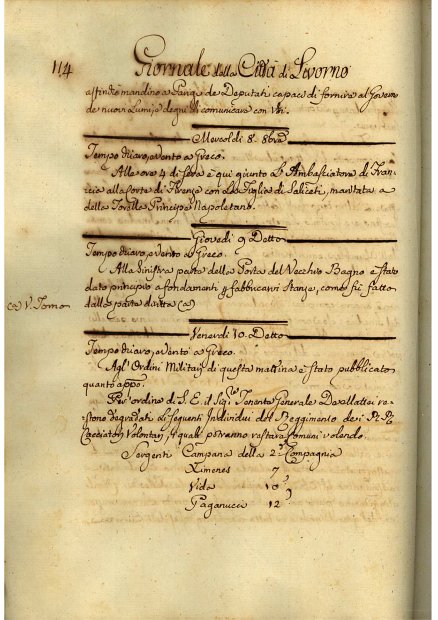 114 Giornale della Città di Livorno
affinchè mandino a Parigi de Deputati capaci di fornire al Governo
de nuovi Lumi, e degni di comunicare con Voi.
Mercoldì 8. 8bre
Tempo chiaro, e vento a Greco.
Alle ore 4 di sera è qui giunto L'Ambasciatore di Fran-
cia alla Corte di Firenze con La Figlia di Saliceti, maritata a
della Torella Principe Napoletano.
Giovedì 9 Detto
Tempo chiaro, e vento a Greco.
Alla sinistra parte della Porta del Vecchio Bagno è stato
dato principio a fondamenti p fabbricarvi Stanze, come fù fatto
dalla parte dritta (a)
(a) V. Tomo
Venerdì 10. Detto
Tempo chiaro, e vento a Greco.
Agl'Ordini Militari di questa mattina è stato pubblicato
quanto app.o
Per ordine di S. E. il Sig.re Tenente Generale De Vallattei re-
stono degradati i seguenti Individui del Reggimento de i R. R.
Cacciatori Volontari, i quali potranno restare Comuni volendo.
Sergenti Campana della 2.a Compagnia
Ximenes 7
Vida 10
Paganucci 12